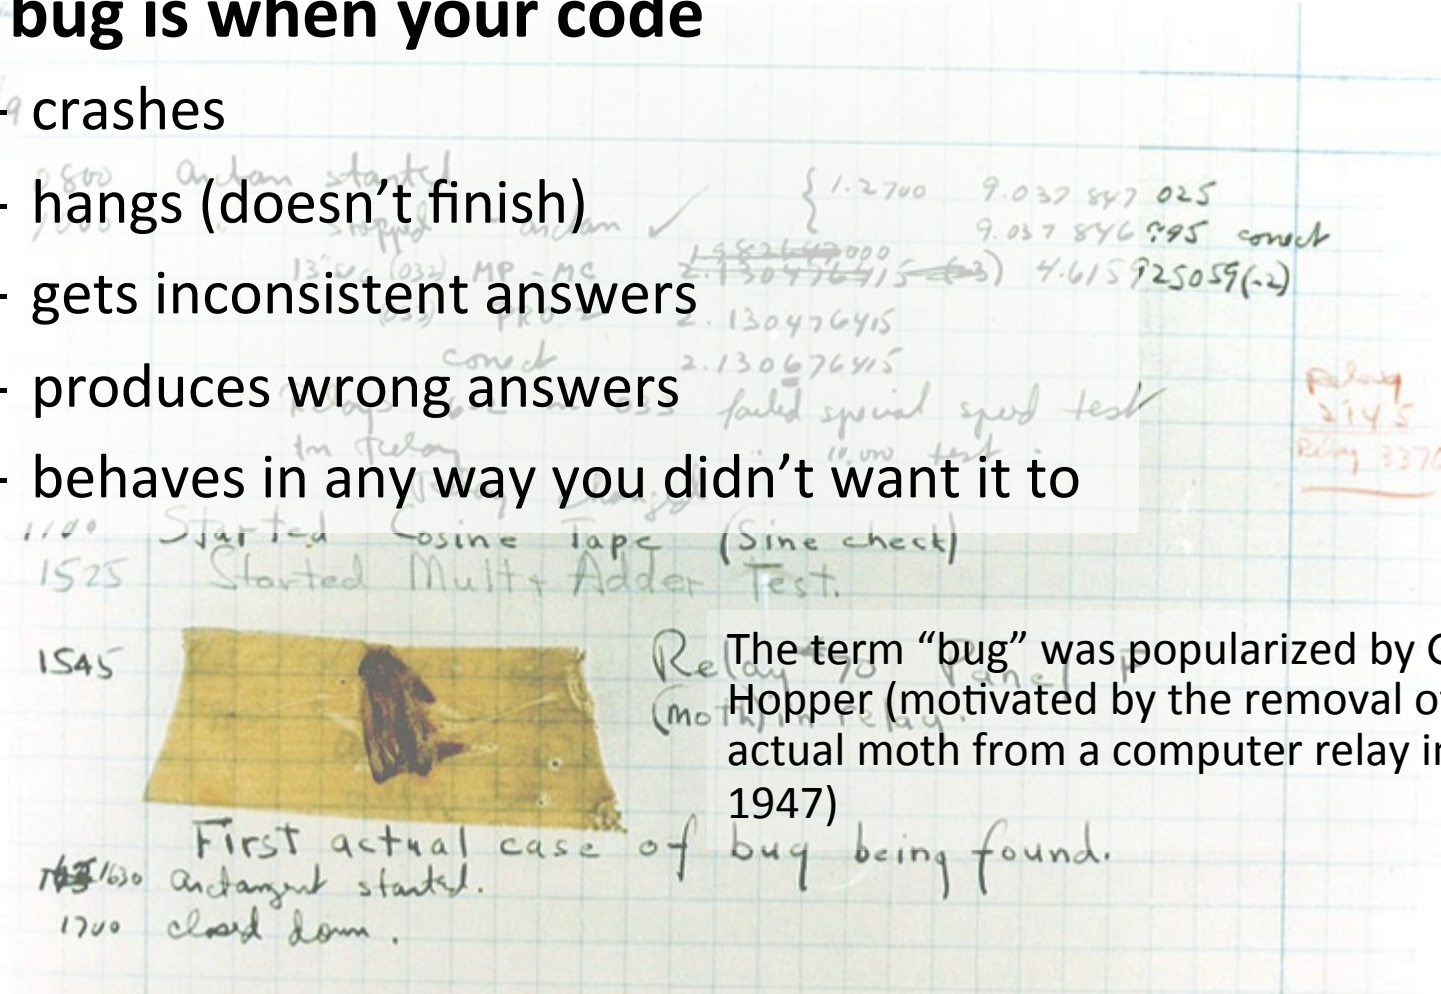 bug is when your code
- crashes
- hangs (doesn't finish)
- gets inconsistent answers
- produces wrong answers
- behaves in any way you didn't want it to
0800 started
stopped ✓
{ 1.2700 9.037 847 025
9.037 846 995 correct
(032) MP - MC 4.615925059(-2)
2.130476415
correct 2.130676415
failed special speed test
10,000 test
Relay
2145
Relay 3370
1100 Started Cosine Tape (Sine check)
1525 Started Mult+ Adder Test.
1545 Relay 70 Panel F
(moth) in relay.
The term “bug” was popularized by
Hopper (motivated by the removal
actual moth from a computer relay
1947)
First actual case of bug being found.
1630 arctangent started.
1700 closed down.